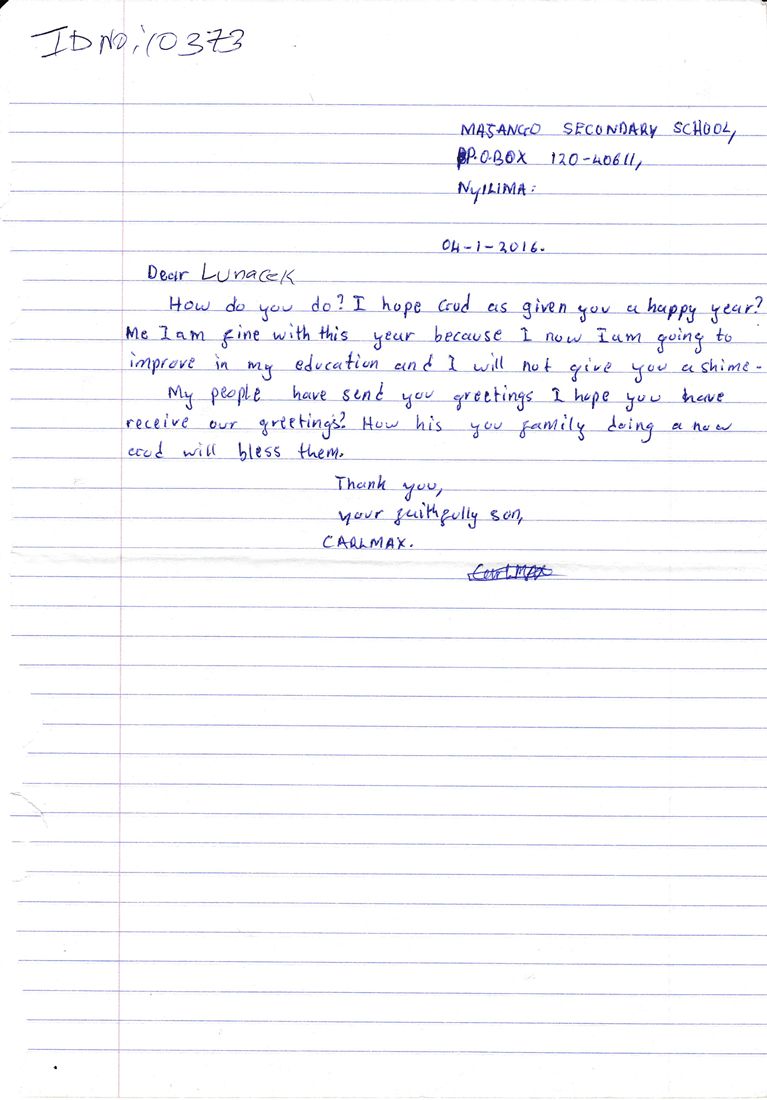 ID NO: 10373
MAJANGO SECONDARY SCHOOL,
P.O.BOX 120-40611,
NYILIMA:
04-1-2016.
Dear Lunacek
How do you do? I hope God as given you a happy year?
Me I am fine with this year because I now I am going to
improve in my education and I will not give you a shime.
My people have send you greetings I hope you have
receive our greetings? How his you family doing a now
God will bless them.
Thank you,
your faithfully son,
CARLMAX.
CarlMax